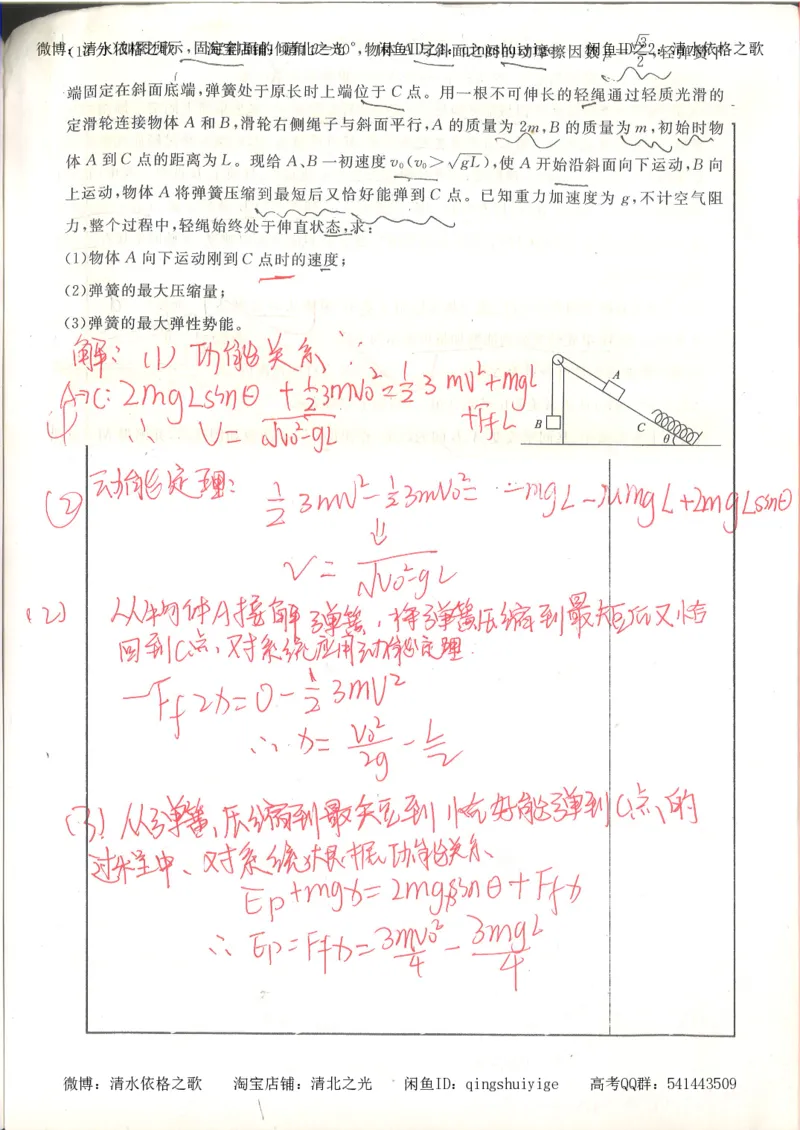 微博：清水依格之歌 淘宝店铺：清北之光 闲鱼ID之1：qingshuiyige 闲鱼ID之2：清水依格之歌
端固定在斜面底端,弹簧处于原长时上端位于 C 点。用一根不可伸长的轻绳通过轻质光滑的
定滑轮连接物体 A 和 B,滑轮右侧绳子与斜面平行,A 的质量为 2m,B 的质量为 m,初始时物
体 A 到 C 点的距离为 L。现给 A、B 一初速度 v₀(v₀>√gL),使 A 开始沿斜面向下运动,B 向
上运动,物体 A 将弹簧压缩到最短后又恰好能弹到 C 点。已知重力加速度为 g,不计空气阻
力,整个过程中,轻绳始终处于伸直状态,求:
(1)物体 A 向下运动刚到 C 点时的速度;
(2)弹簧的最大压缩量;
(3)弹簧的最大弹性势能。
解：(1) 功能关系：
A→C: 2mgLsinθ + ½3mv₀² = ½3mv² + mgL
+FfL
∴ v = √v₀²-gL
A
B
C
θ
(2) 动能定理：½3mv² - ½3mv₀² = -mgL - μmgL + 2mgLsinθ
⇓
v = √v₀²-gL
(2) 从物体A接触弹簧,将弹簧压缩到最短后又恰
回到C点,对系统应用动能定理
-Ff2x = 0 - ½3mv²
∴ x = v₀²/2g - L/2
(3) 从弹簧压缩到最短到恰好能弹到C点的
过程中、对系统根据功能关系
Ep + mgx = 2mgxsinθ + Ffx
∴ Ep = Ffx = 3mv₀²/4 - 3mgL/4
微博：清水依格之歌 淘宝店铺：清北之光 闲鱼ID：qingshuiyige 高考QQ群：541443509